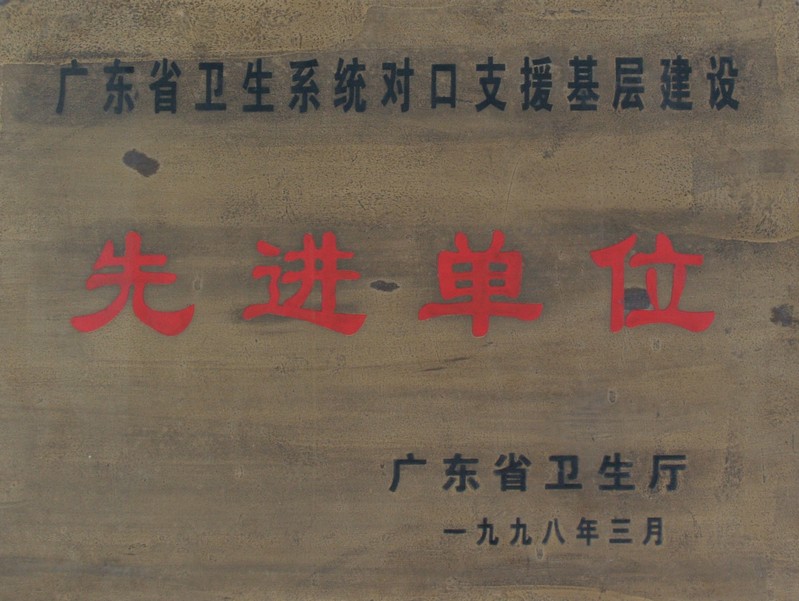 广东省卫生系统对口支援基层建设
先进单位
广东省卫生厅
一九九八年三月